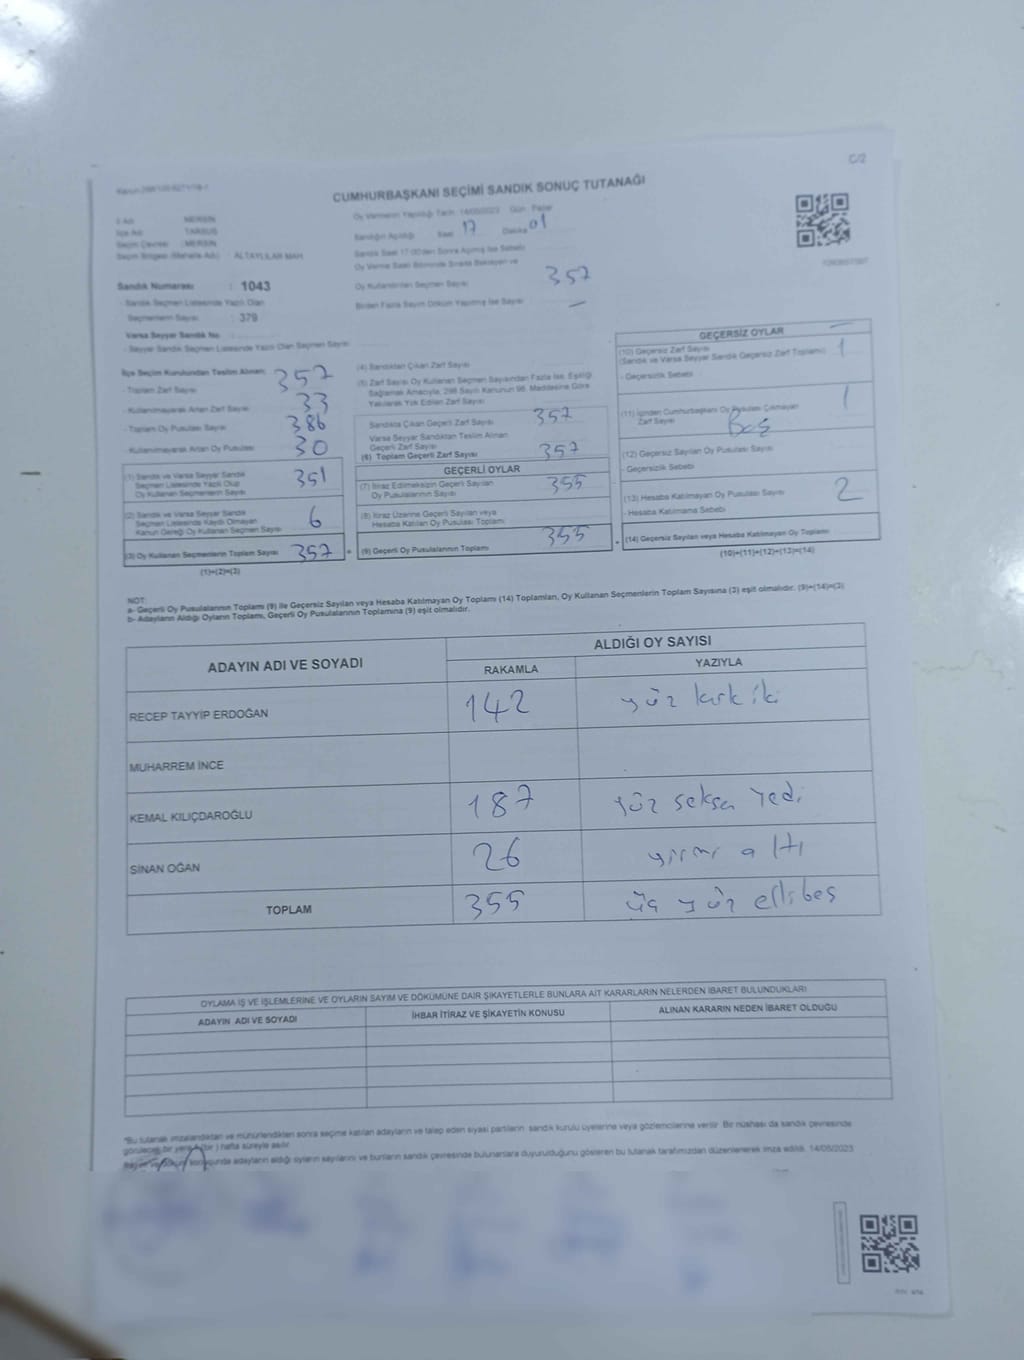 C/2
CUMHURBAŞKANI SEÇİMİ SANDIK SONUÇ TUTANAĞI
İl Adı : MERSİN
İlçe Adı : TARSUS
Seçim Çevresi : MERSİN
Seçim Bölgesi (Mahalle Adı) : ALTAYLILAR MAH.
Sandık Numarası : 1043
- Sandık Seçmen Listesinde Yazılı Olan
Seçmenlerin Sayısı : 379
Varsa Seyyar Sandık No :
- Seyyar Sandık Seçmen Listesinde Yazılı Olan Seçmen Sayısı
Oy Vermenin Yapıldığı Tarih: 14/05/2023 Gün: Pazar
Sandığın Açıldığı Saat 17 Dakika 01
Sandık Saat 17:00'den Sonra Açılmış İse Sebebi
Oy Verme Saati Bitiminde Sırada Bekleyen ve
Oy Kullandırılan Seçmen Sayısı 357
Birden Fazla Sayım Döküm Yapılmış İse Sayısı —
İlçe Seçim Kurulundan Teslim Alınan;
- Toplam Zarf Sayısı 357
- Kullanılmayarak Artan Zarf Sayısı 33
- Toplam Oy Pusulası Sayısı 386
- Kullanılmayarak Artan Oy Pusulası 30
(1) Sandık ve Varsa Seyyar Sandık
Seçmen Listesinde Yazılı Olup
Oy Kullanan Seçmenlerin Sayısı 351
(2) Sandık ve Varsa Seyyar Sandık
Seçmen Listesinde Kaydı Olmayan
Kanun Gereği Oy Kullanan Seçmen Sayısı 6
(3) Oy Kullanan Seçmenlerin Toplam Sayısı 357
(1)+(2)=(3)
(4) Sandıktan Çıkan Zarf Sayısı
(5) Zarf Sayısı Oy Kullanan Seçmen Sayısından Fazla İse, Eşitliği
Sağlamak Amacıyla, 298 Sayılı Kanunun 98. Maddesine Göre
Yakılarak Yok Edilen Zarf Sayısı
Sandıkta Çıkan Geçerli Zarf Sayısı 357
Varsa Seyyar Sandıktan Teslim Alınan
Geçerli Zarf Sayısı
(6) Toplam Geçerli Zarf Sayısı 357
GEÇERLİ OYLAR
(7) İtiraz Edilmeksizin Geçerli Sayılan
Oy Pusulalarının Sayısı 355
(8) İtiraz Üzerine Geçerli Sayılan veya
Hesaba Katılan Oy Pusulası Toplamı
(9) Geçerli Oy Pusulalarının Toplamı 355
GEÇERSİZ OYLAR
(10) Geçersiz Zarf Sayısı
(Sandık ve Varsa Seyyar Sandık Geçersiz Zarf Toplamı) 1
- Geçersizlik Sebebi
(11) İçinden Cumhurbaşkanı Oy Pusulası Çıkmayan
Zarf Sayısı Boş 1
(12) Geçersiz Sayılan Oy Pusulası Sayısı
- Geçersizlik Sebebi
(13) Hesaba Katılmayan Oy Pusulası Sayısı 2
- Hesaba Katılmama Sebebi
(14) Geçersiz Sayılan veya Hesaba Katılmayan Oy Toplamı
(10)+(11)+(12)+(13)=(14)
NOT:
a- Geçerli Oy Pusulalarının Toplamı (9) ile Geçersiz Sayılan veya Hesaba Katılmayan Oy Toplamı (14) Toplamları, Oy Kullanan Seçmenlerin Toplam Sayısına (3) eşit olmalıdır. (9)+(14)=(3)
b- Adayların Aldığı Oyların Toplamı, Geçerli Oy Pusulalarının Toplamına (9) eşit olmalıdır.
ADAYIN ADI VE SOYADI ALDIĞI OY SAYISI
RAKAMLA YAZIYLA
RECEP TAYYİP ERDOĞAN 142 yüz kırk iki
MUHARREM İNCE
KEMAL KILIÇDAROĞLU 187 yüz seksen yedi
SİNAN OĞAN 26 yirmi altı
TOPLAM 355 üç yüz elli beş
OYLAMA İŞ VE İŞLEMLERİNE VE OYLARIN SAYIM VE DÖKÜMÜNE DAİR ŞİKAYETLERLE BUNLARA AİT KARARLARIN NELERDEN İBARET BULUNDUKLARI
ADAYIN ADI VE SOYADI İHBAR İTİRAZ VE ŞİKAYETİN KONUSU ALINAN KARARIN NEDEN İBARET OLDUĞU
*Bu tutanak imzalandıktan ve mühürlendikten sonra seçime katılan adayların ve talep eden siyasi partilerin sandık kurulu üyelerine veya gözlemcilerine verilir. Bir nüshası da sandık çevresinde
görülecek bir yere 1 (bir) hafta süreyle asılır.
adayların aldığı oyların sayılarını ve bunların sandık çevresinde bulunanlara duyurulduğunu gösteren bu tutanak tarafımızdan düzenlenerek imza edildi. 14/05/2023